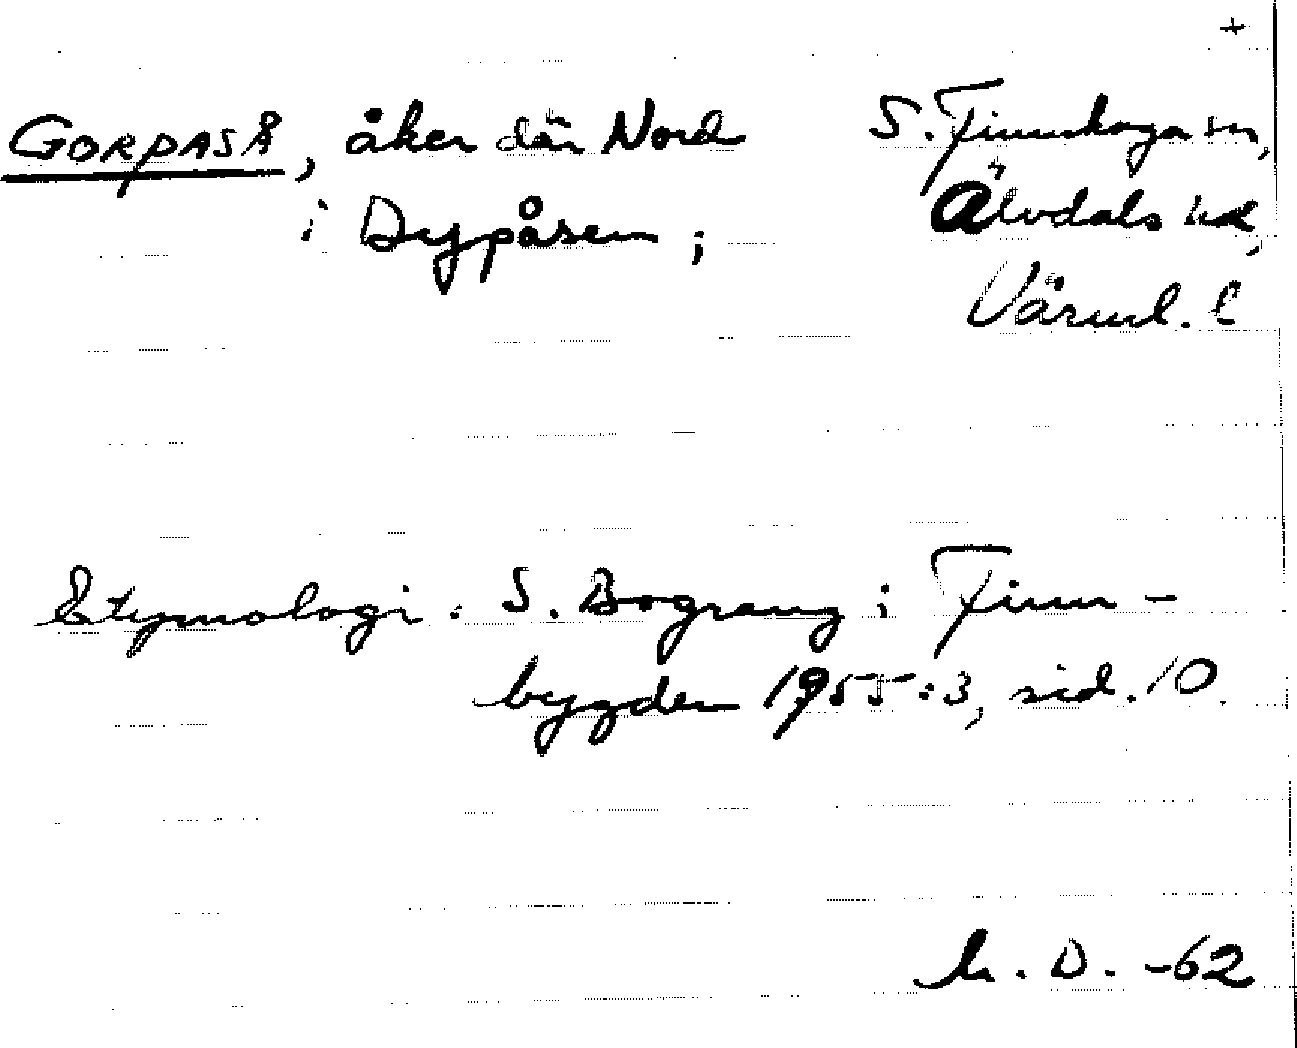 +
GORPASÅ, åker där Nord
i Dypåsen;
S. Finnskoga sn,
Älvdals hd,
Värml. l
Etymologi: S. Bograng i Finn-
bygden 1955:3, sid. 10.
D. -62